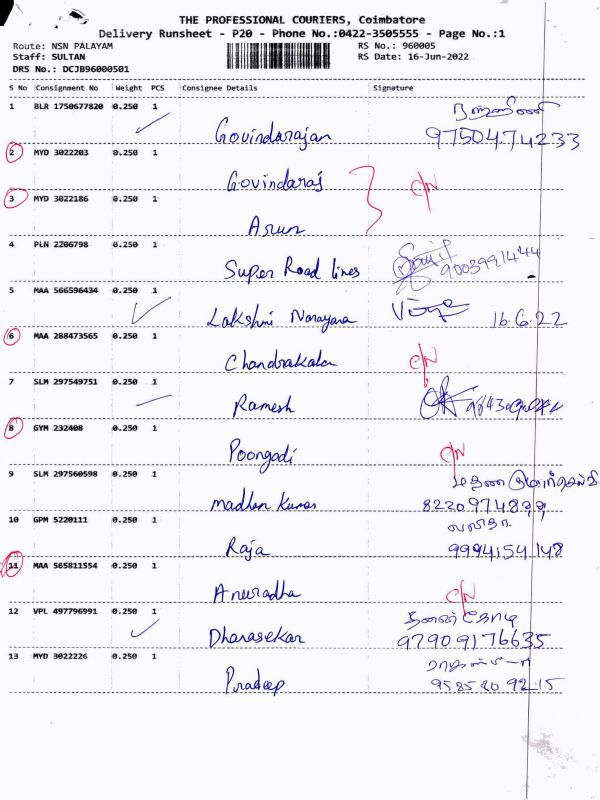 THE PROFESSIONAL COURIERS, Coimbatore
Delivery Runsheet - P20 - Phone No.:0422-3505555 - Page No.:1
Route: NSN PALAYAM RS No.: 960005
Staff: SULTAN RS Date: 16-Jun-2022
DRS No.: DCJB96000501
S No Consignment No Weight PCS Consignee Details Signature
1 BLR 1750677820 0.250 1
Govindarajan 9750474233
2 MYD 3022203 0.250 1
Govindaraj C/N
3 MYD 3022186 0.250 1
Arun
4 PLN 2206798 0.250 1
Super Road lines 9003991444
5 MAA 566596434 0.250 1
Lakshmi Narayana 16.6.22
6 MAA 288473565 0.250 1
Chandrakala C/N
7 SLM 297549751 0.250 1
Ramesh
8 GYM 232408 0.250 1
Poongodi C/N
9 SLM 297560598 0.250 1
Madhan Kumar
10 GPM 5220111 0.250 1 லலிதா
Raja 9994154148
11 MAA 565811554 0.250 1
Anuradha C/N
12 VPL 497796991 0.250 1
Dhanasekar 97909176635
13 MYD 3022226 0.250 1
Pradeep 9585209215